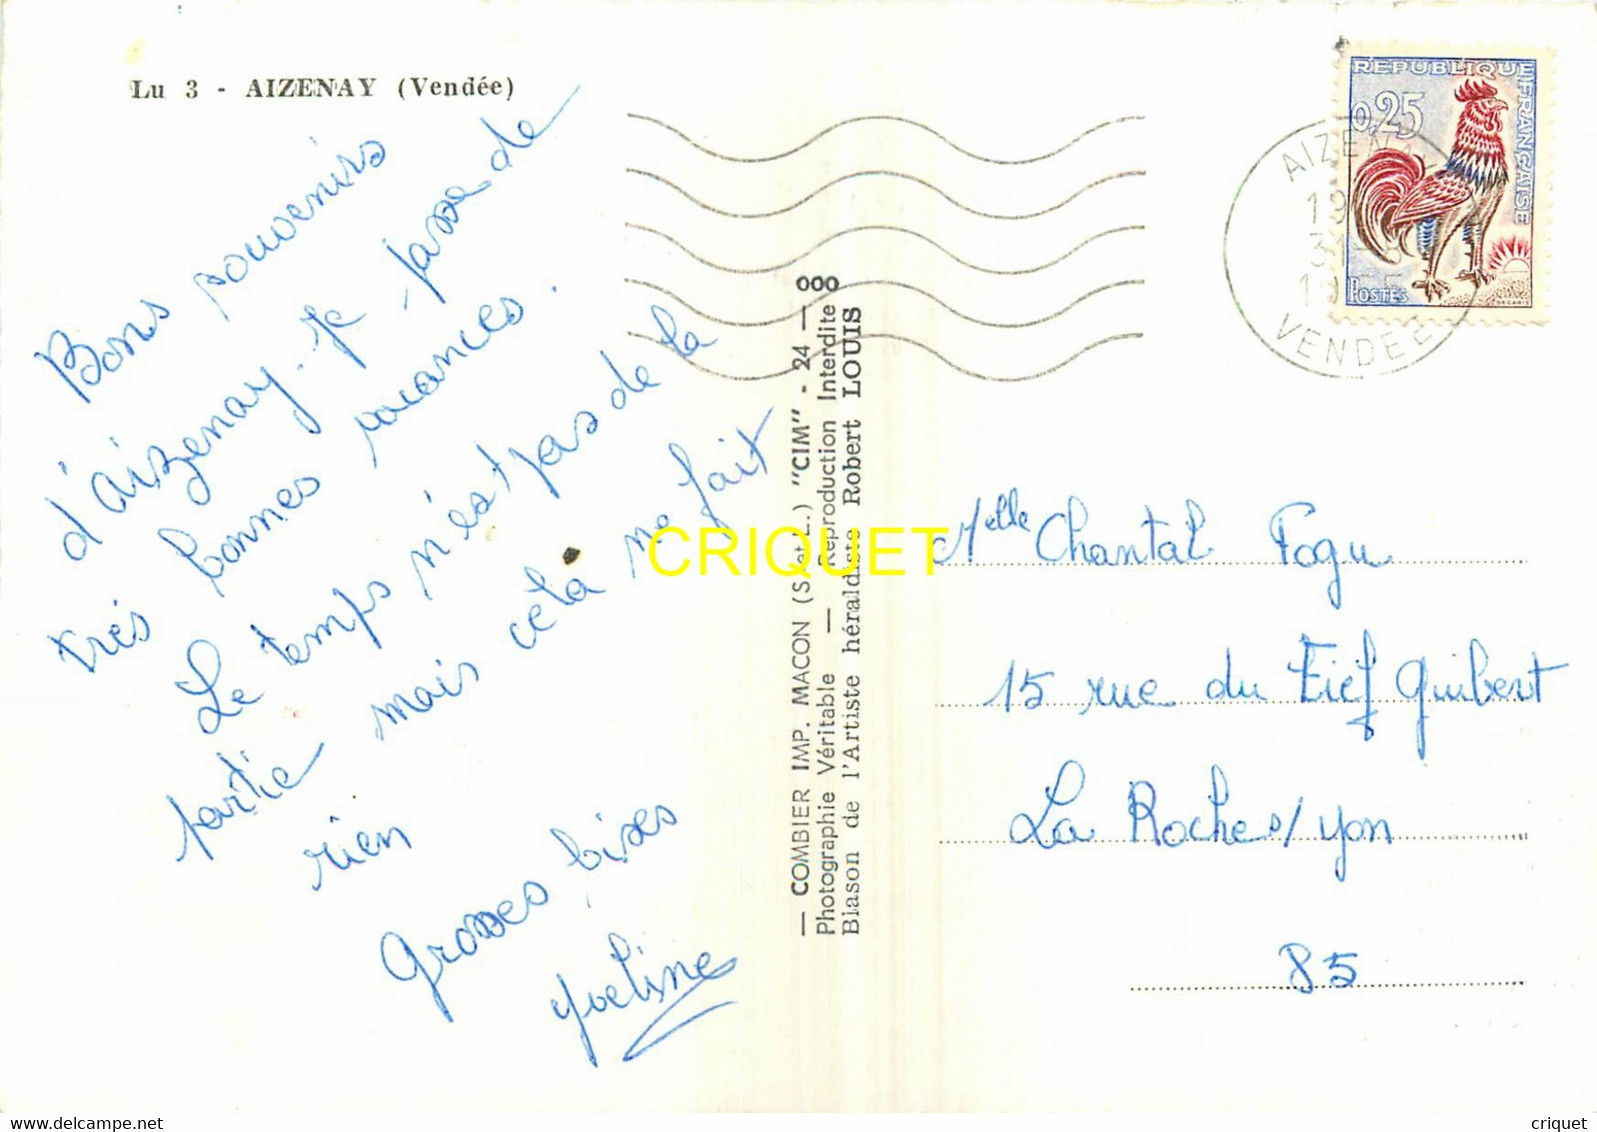 Lu 3 - AIZENAY (Vendée)
Bons souvenirs
d'aizenay. je passe de
très bonnes vacances.
Le temps n'est pas de la
partie mais cela ne fait
rien
Grosses bises
Yveline
— COMBIER IMP. MACON (S.-et-L.) "CIM" - 24 — 000
Photographie Véritable — Reproduction Interdite
Blason de l'Artiste héraldiste Robert LOUIS
CRIQUET
REPUBLIQUE FRANÇAISE
0,25
POSTES
AIZENAY
19
31-
VENDEE
Melle Chantal Fogu
15 rue du Fief Guibert
La Roche s/yon
85
criquet